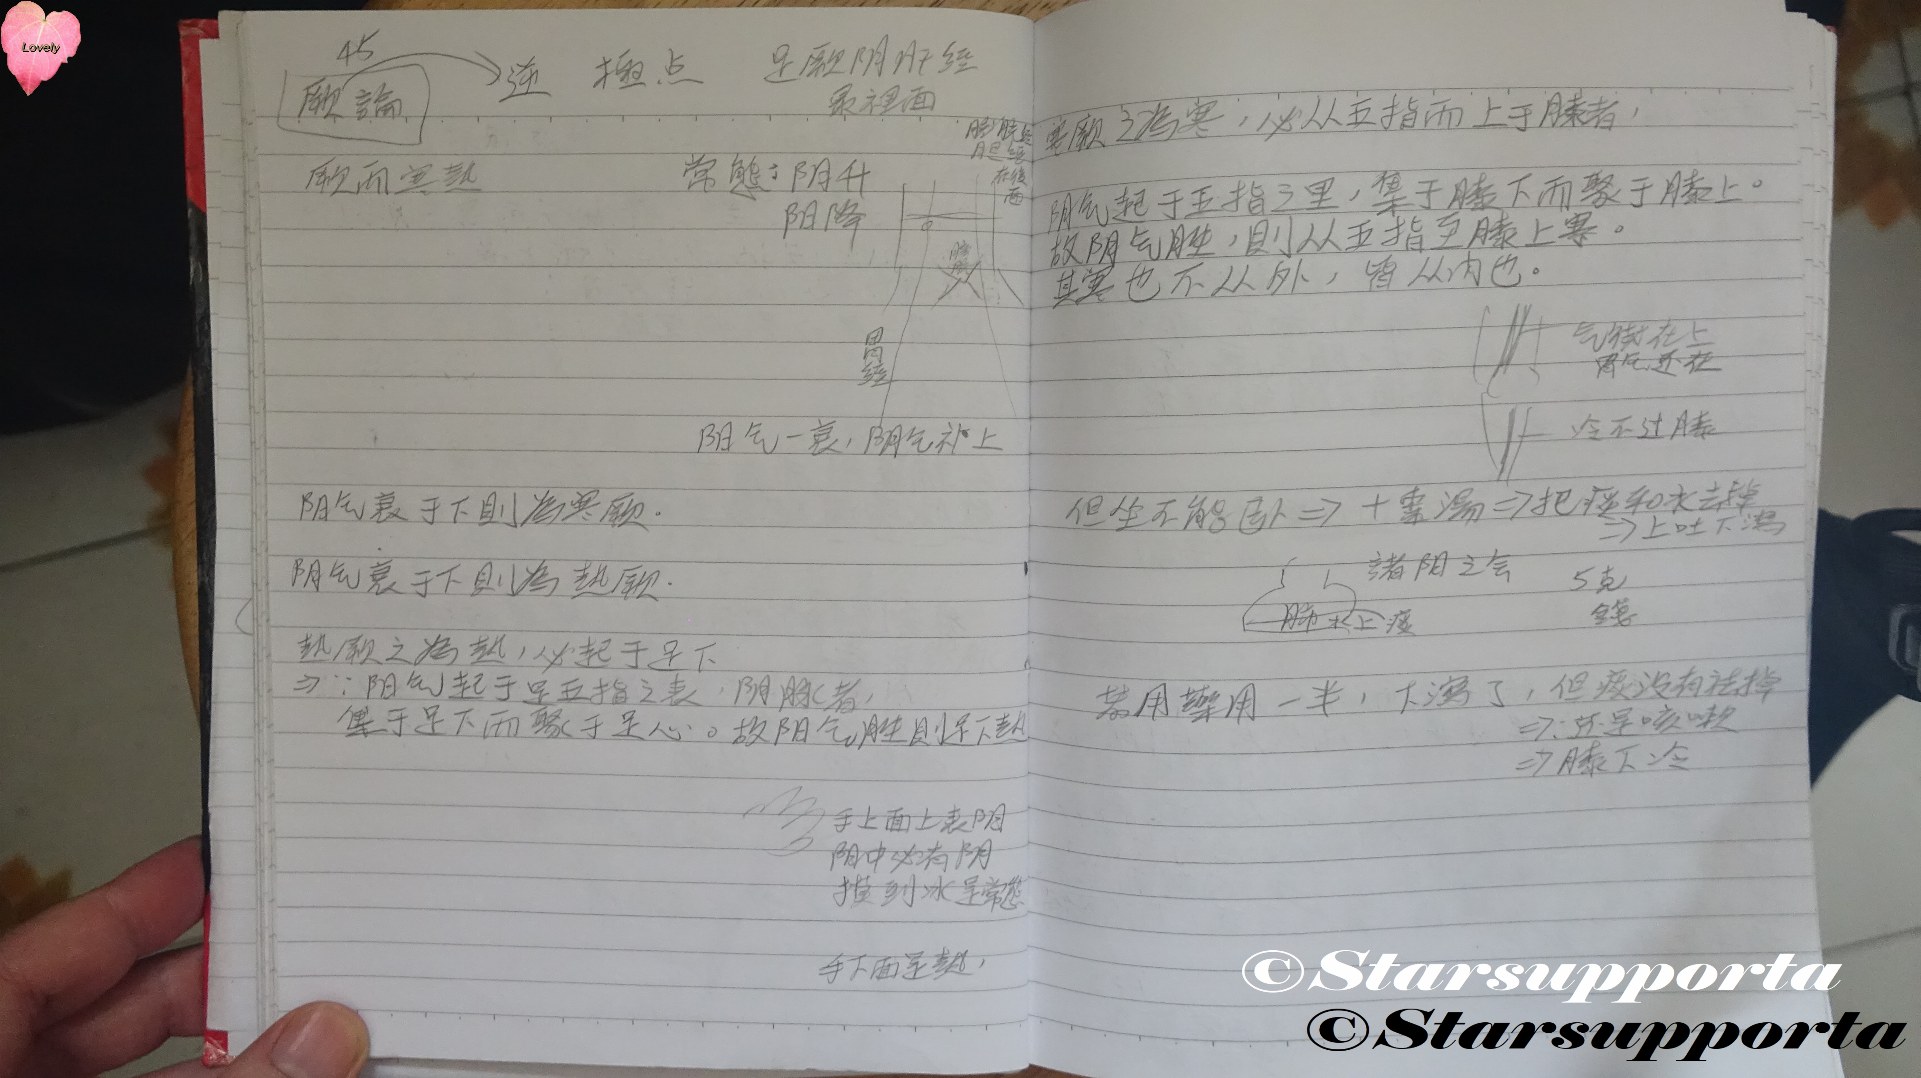 Lovely
45
厥論
逆 極点 足厥阴肝经
最裡面
厥而寒热
常態：阴升
阳降
膀胱经
胆经
在後面
胃经
阳气一衰，阴气补上
阳气衰于下則為寒厥.
阴气衰于下則為热厥.
热厥之為热，必起于足下
⇒∵阳气起于足五指之表，阴脉者，
集于足下而聚于足心。故阳气胜則足下热
手上面上表阳
阳中必有阴
摸到冰是常態
手下面是热，
寒厥之為寒，必从五指而上于膝者，
阴气起于五指之里，集于膝下而聚于膝上。
故阴气胜，則从五指至膝上寒。
其寒也不从外，皆从内也。
在上
胃气还在
冷不过膝
但坐不能卧⇒十枣湯⇒把痰和水去掉
⇒上吐下瀉
諸阳之会
5克
錢
肺 水上痰
若用藥用一半，下瀉了，但痰没有祛掉
⇒还是咳嗽
⇒膝下冷
©Starsupporta
©Starsupporta